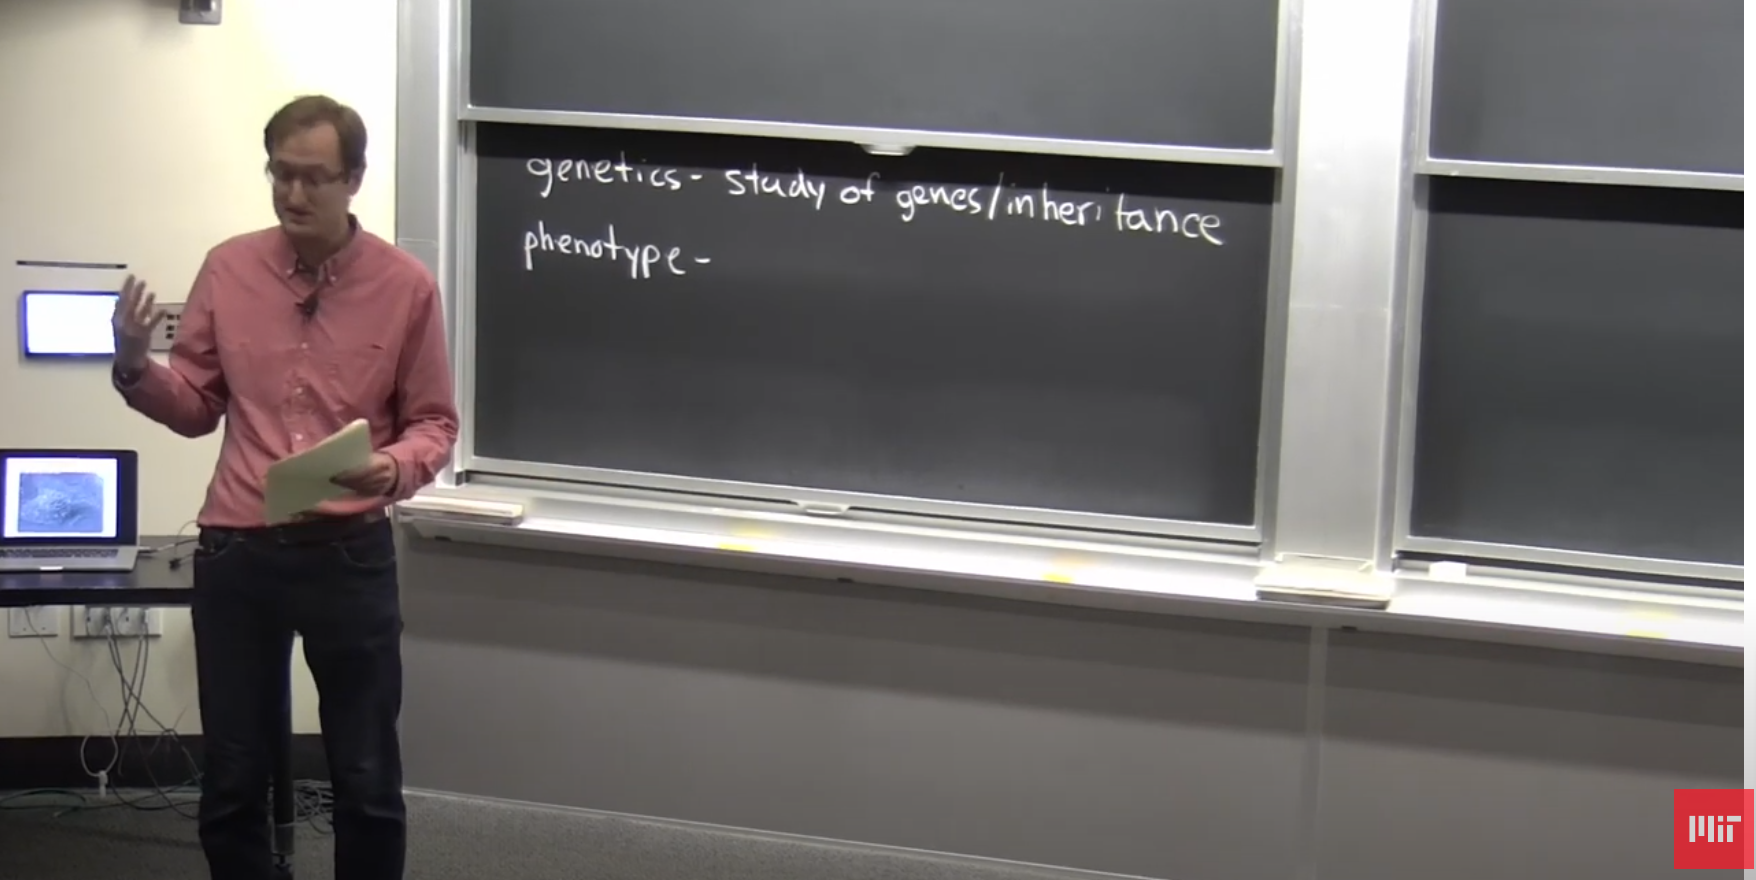 genetics - study of genes/inheritance
phenotype -
MIT